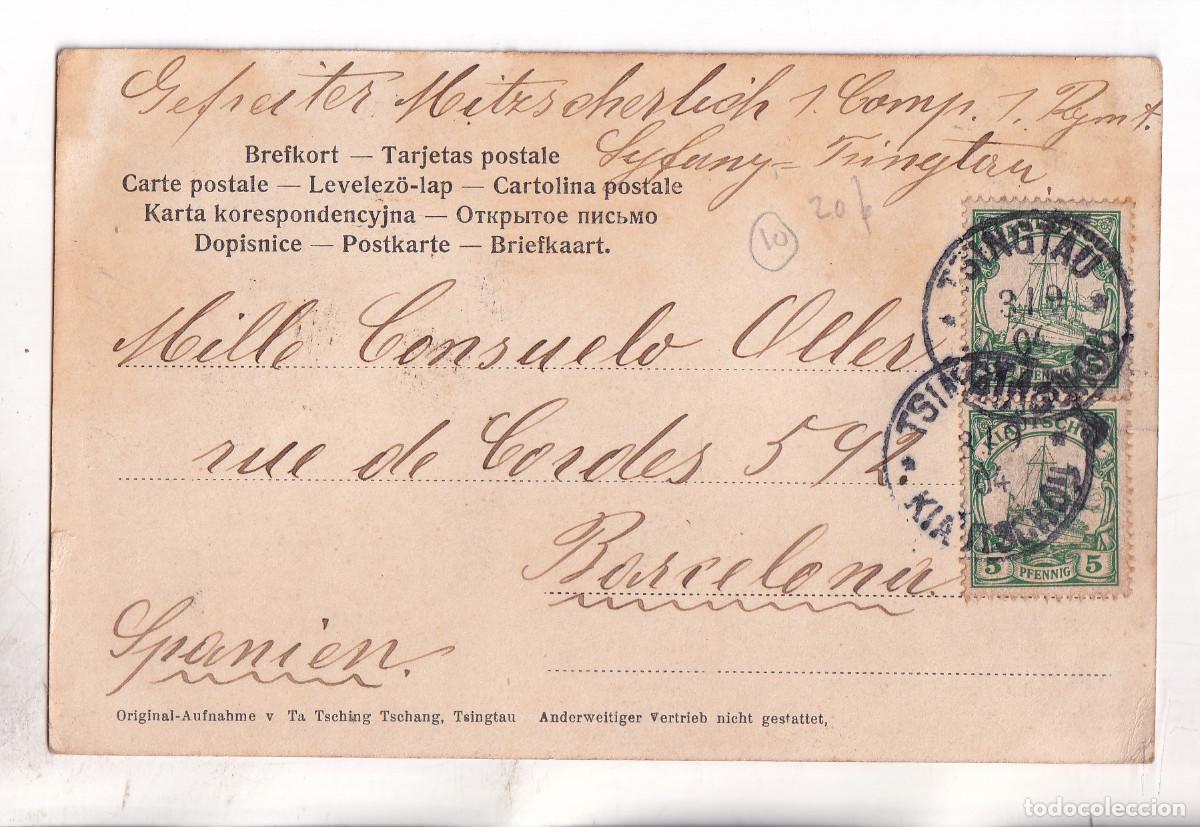 Gefreiter Mitzscherlich 1. Comp. 1. Rgmt.
Syfang = Tsingtau
Brefkort — Tarjetas postale
Carte postale — Levelező-lap — Cartolina postale
Karta korespondencyjna — Открытое письмо
Dopisnice — Postkarte — Briefkaart.
10
TSINGTAU
KIAUTSCHOU
5 PFENNIG
Mille Consuelo Oller
rue de Cordes 592.
TSINGTAU
KIAUTSCHOU
KIAUTSCHOU
5 PFENNIG 5
Barcelona.
Spanien.
Original-Aufnahme v Ta Tsching Tschang, Tsingtau Anderweitiger Vertrieb nicht gestattet,
todocoleccion